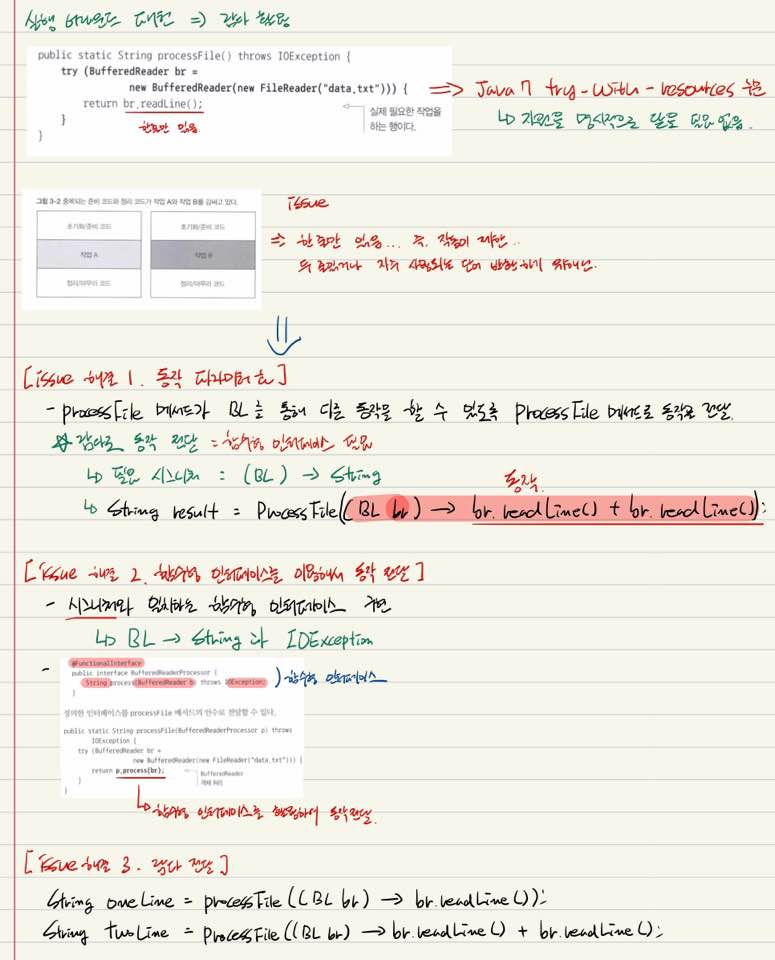 실행 어라운드 패턴 => 람다 활용
public static String processFile() throws IOException {
try (BufferedReader br =
new BufferedReader(new FileReader("data.txt"))) {
return br.readLine();
}
}
실제 필요한 작업을
하는 행이다.
한줄만 읽음
=> Java 7 try-with-resources 구문
↳ 자원을 명시적으로 닫을 필요 없음.
그림 3-2 중복되는 준비 코드와 정리 코드가 작업 A와 작업 B를 감싸고 있다.
초기화/준비 코드
작업 A
정리/마무리 코드
초기화/준비 코드
작업 B
정리/마무리 코드
issue
=> 한줄만 읽음... 즉, 작동이 제한..
두 줄읽거나 자주 사용되는 단어 반환하기 위해선.
[issue 해결 1. 동작 파라미터화]
- processFile 메서드가 BL을 통해 다른 동작을 할 수 있도록 processFile 메서드로 동작을 전달.
☆ 람다로 동작 전달 = 함수형 인터페이스 필요
↳ 필요 시그니처 : (BL) → String
동작.
↳ String result = ProcessFile((BL br) → br.readLine() + br.readLine());
[issue 해결 2. 함수형 인터페이스를 이용해서 동작 전달]
- 시그니처와 일치하는 함수형 인터페이스 구현
↳ BL → String과 IOException
-
@FunctionalInterface
public interface BufferedReaderProcessor {
String process(BufferedReader b) throws IOException;
}
) 함수형 인터페이스
정의한 인터페이스를 processFile 메서드의 인수로 전달할 수 있다.
public static String processFile(BufferedReaderProcessor p) throws
IOException {
try (BufferedReader br =
new BufferedReader(new FileReader("data.txt"))) {
return p.process(br);
}
}
BufferedReader
객체 처리
↳ 함수형 인터페이스를 활용하여 동작전달.
[issue 해결 3. 람다 전달]
String oneLine = processFile((BL br) → br.readLine());
String twoLine = processFile((BL br) → br.readLine() + br.readLine();